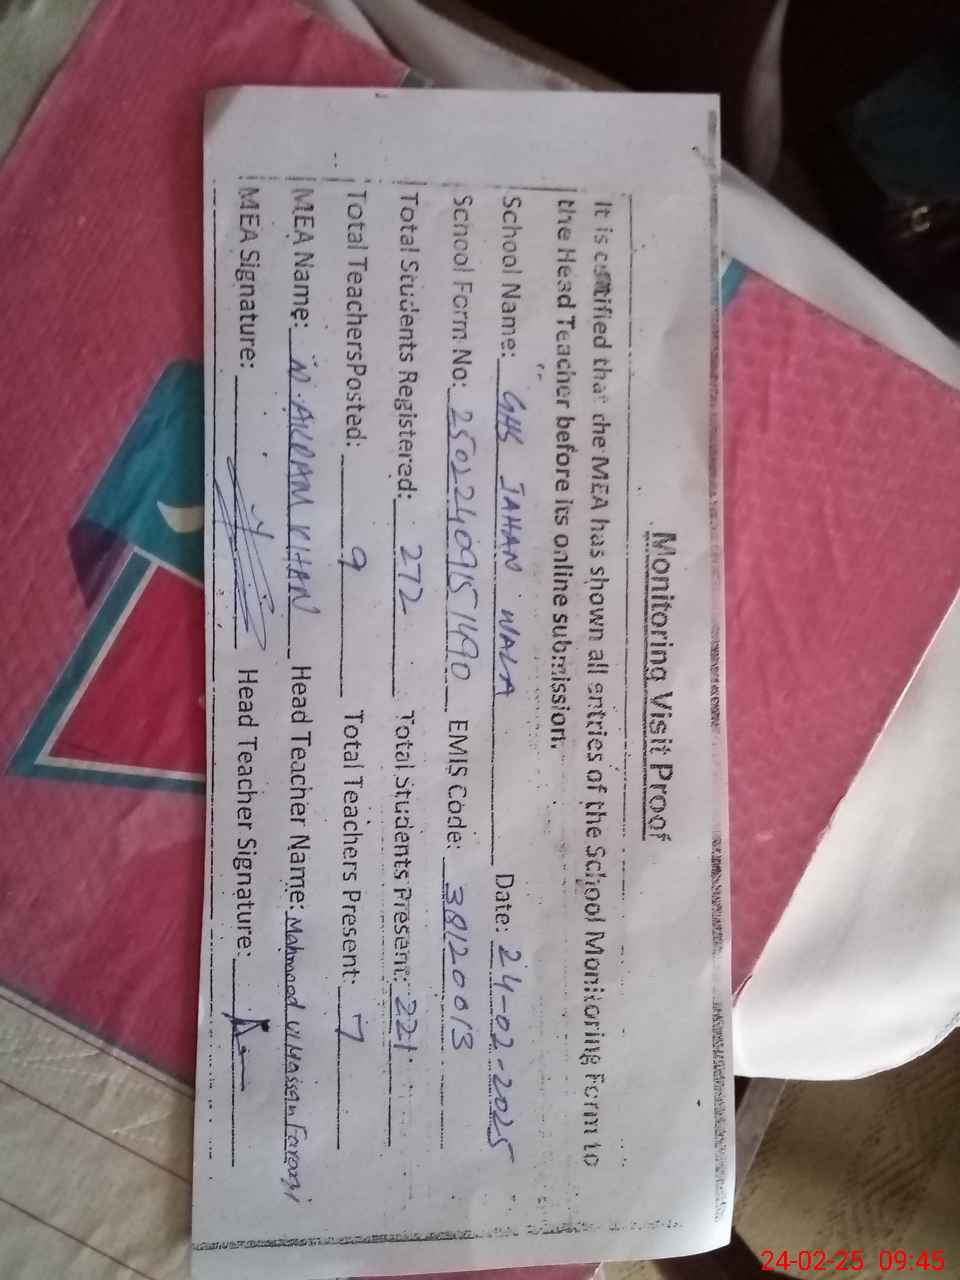 Monitoring Visit Proof
It is certified that the MEA has shown all entries of the School Monitoring Form to
the Head Teacher before its online submission.
School Name: GHS JAHAN WALA Date: 24-02-2025
School Form No: 25022409151490 EMIS Code: 38120013
Total Students Registered: 272 Total Students Present: 221
Total Teachers Posted: 9 Total Teachers Present: 7
MEA Name: M. AKRAM KHAN Head Teacher Name: Mahmood Ul Hassan
MEA Signature: Head Teacher Signature:
24-02-25 09:45